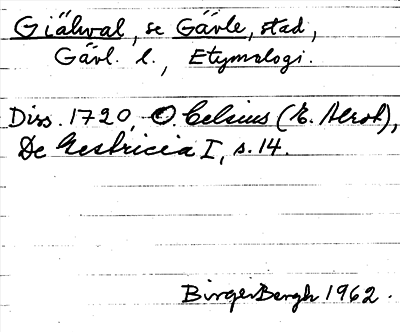 Giälwal, se Gävle, stad,
Gävl. l., Etymologi.
Diss. 1720, O. Celsius (E. Alroth),
De Gestricia I, s. 14.
Birger Bergh 1962.